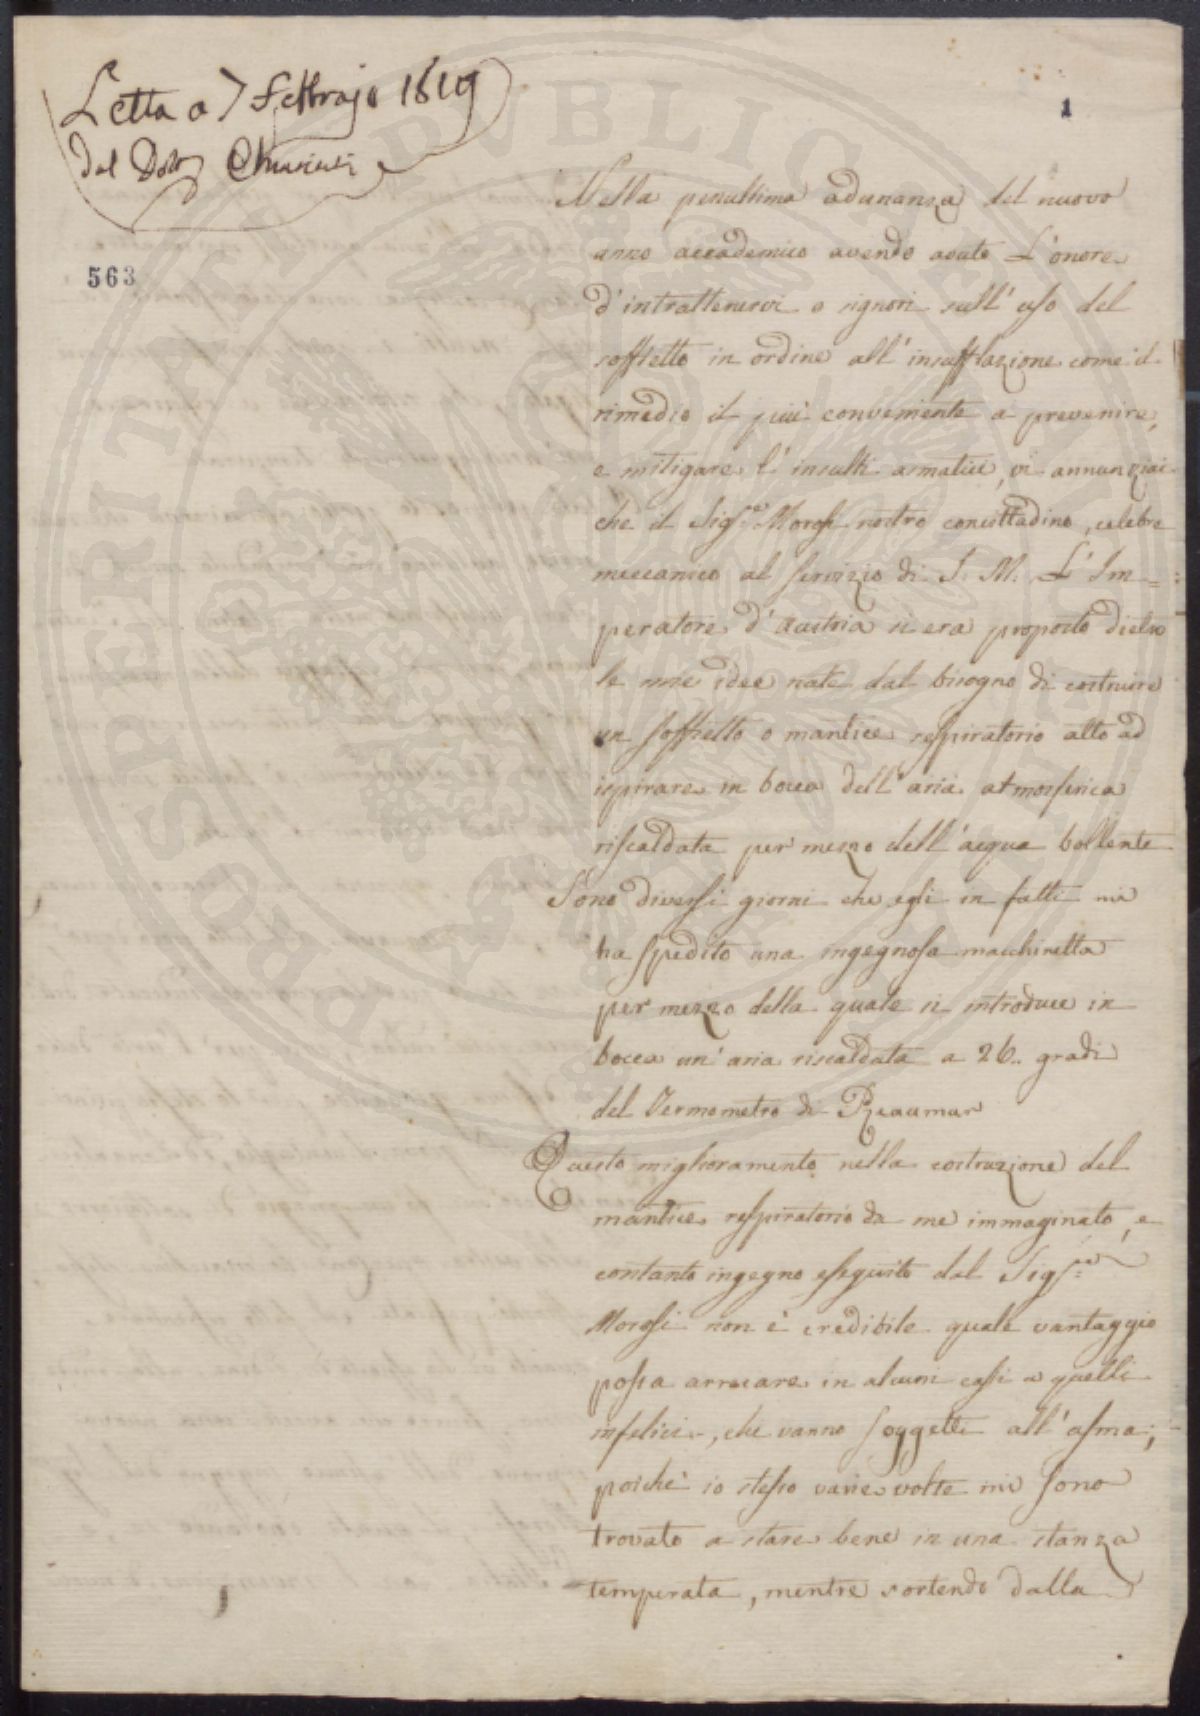 Letta a 7 Febbrajo 1819
dal Dott
1
563
Nella penultima adunanza del nuovo
anno accademico avendo avuto L'onore
d'intrattenervi o signori sull'uso del
soffietto in ordine all'insufflazione come il
rimedio il più conveniente a prevenire,
e mitigare l'insulti asmatici, vi annunziai
che il Sig.re Morosi nostro concittadino, celebre
meccanico al servizio di S. M. L'Im=
peratore d'Austria si era proposto dietro
le mie idee nate dal bisogno di costruire
un soffietto o mantice respiratorio atto ad
ispirare in bocca dell'aria atmosferica
riscaldata per mezzo dell'acqua bollente
Sono diversi giorni che egli in fatti mi
ha spedito una ingegnosa macchinetta
per mezzo della quale si introduce in
bocca un'aria riscaldata a 26.. gradi
del Termometro di Reaumur
Questo miglioramento nella costruzione del
mantice respiratorio da me immaginato, e
contanto ingegno eseguito dal Sig.re
Morosi non è credibile quale vantaggio
possa arrecare in alcuni casi a quelli
infelici, che vanno soggetti all'asma;
poichè io stesso varie volte mi sono
trovato a stare bene in una stanza
temperata, mentre sortendo dalla
PROSPERITATI PVBLICAE